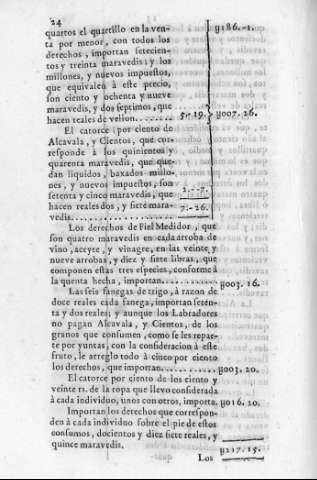 24
quartos el quartillo en la ven- y186.-1.
ta por menor, con todos los
derechos, importan setecien-
tos y treinta maravedis; y los
millones, y nuevos impuestos,
que equivalen à este precio,
son ciento y ochenta y nueve
maravedis, y dos septimos, que
hacen reales de vellon....... 5.-19. y007.26.
El catorce por ciento de
Alcavala, y Cientos, que cor-
responde à los quinientos y
quarenta maravedis, que que-
dan liquidos, baxados millo-
nes, y nuevos impuestos, son
setenta y cinco maravedis, que 2.--7.
hacen reales dos, y siete mara-
vedis........................ 7.-26.
Los derechos de Fiel Medidor, que
son quatro maravedis en cada arroba de
vino, aceyte, y vinagre, en las veinte y
nueve arrobas, y diez y siete libras, que
componen estas tres especies, conforme à
la quenta hecha, importan........... y003. 16.
Las seis fanegas de trigo, à razon de
doce reales cada fanega, importan seten-
ta y dos reales; y aunque los Labradores
no pagan Alcavala, y Cientos, de los
granos que consumen, como se les repar-
te por yuntas, con la consideracion à este
fruto, le arreglo todo à cinco por ciento
los derechos, que importan........... y003. 20.
El catorce por ciento de los ciento y
veinte rs. de la ropa que llevo considerada
à cada individuo, unos con otros, importa. y016. 20.
Importan los derechos que correspon-
den à cada individuo sobre el pie de estos
consumos, docientos y diez y siete reales, y
quince maravedis. y217. 15.
Los